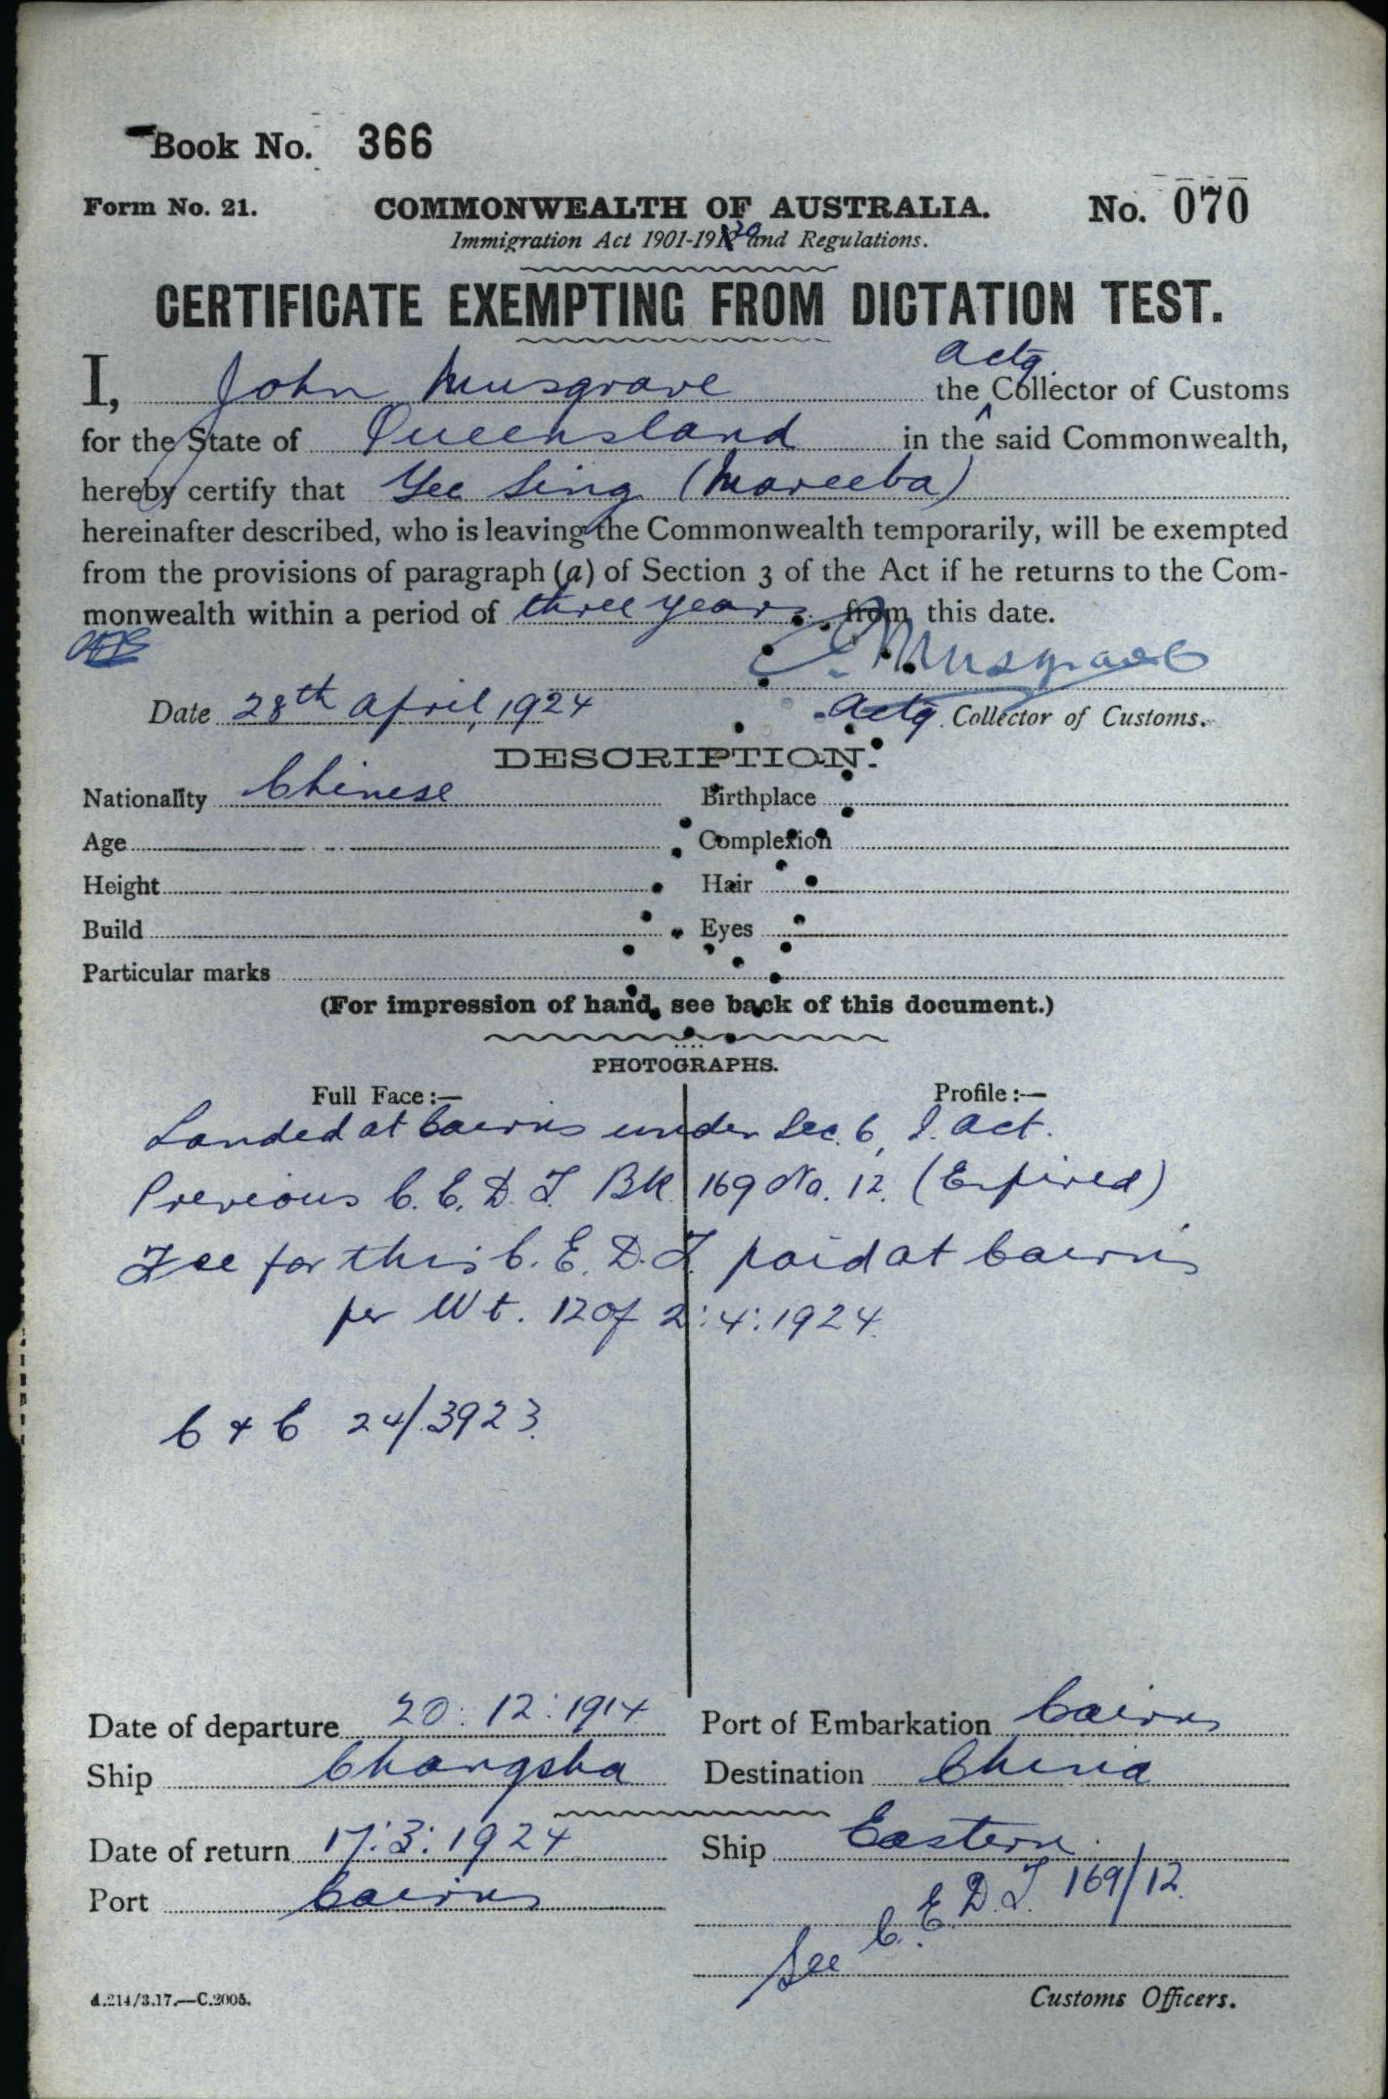 Book No. 366
Form No. 21. COMMONWEALTH OF AUSTRALIA. No. 070
Immigration Act 1901-1920 and Regulations.
CERTIFICATE EXEMPTING FROM DICTATION TEST.
I, John Musgrave the actg. Collector of Customs
for the State of Queensland in the said Commonwealth,
hereby certify that Yee Sing (Mareeba)
hereinafter described, who is leaving the Commonwealth temporarily, will be exempted
from the provisions of paragraph (a) of Section 3 of the Act if he returns to the Com-
monwealth within a period of three years from this date.
Musgrave
Date 28th April, 1924 Actg. Collector of Customs.
DESCRIPTION.
Nationality Chinese Birthplace
Age Complexion
Height Hair
Build Eyes
Particular marks
(For impression of hand, see back of this document.)
PHOTOGRAPHS.
Full Face:— Profile:—
Landed at Cairns under Sec. 6, I. Act.
Previous C. E. D. T. Bk 169 No. 12. (Expired)
Fee for this C. E. D. T. paid at Cairns
per Wt. 12 of 2:4:1924.
C & E 24/3923.
Date of departure 20:12:1914 Port of Embarkation Cairns
Ship Changsha Destination China
Date of return 17:3:1924 Ship Eastern.
Port Cairns
See C. E. D. T. 169/12.
A.214/3.17.—C.2005. Customs Officers.